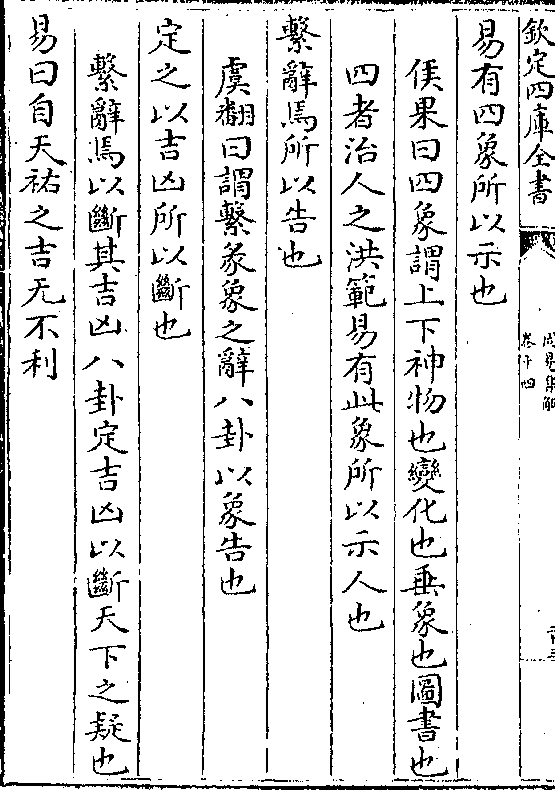 欽定四庫全書
易有四象所以示也
侯果曰四象謂上下神物也變化也垂象也圖書也
四者治人之洪範易有此象所以示人也
繫辭焉所以告也
虞翻曰謂繫彖象之辭八卦以象告也
定之以吉凶所以斷也
繫辭焉以斷其吉凶八卦定吉凶以斷天下之疑也
易曰自天祐之吉无不利